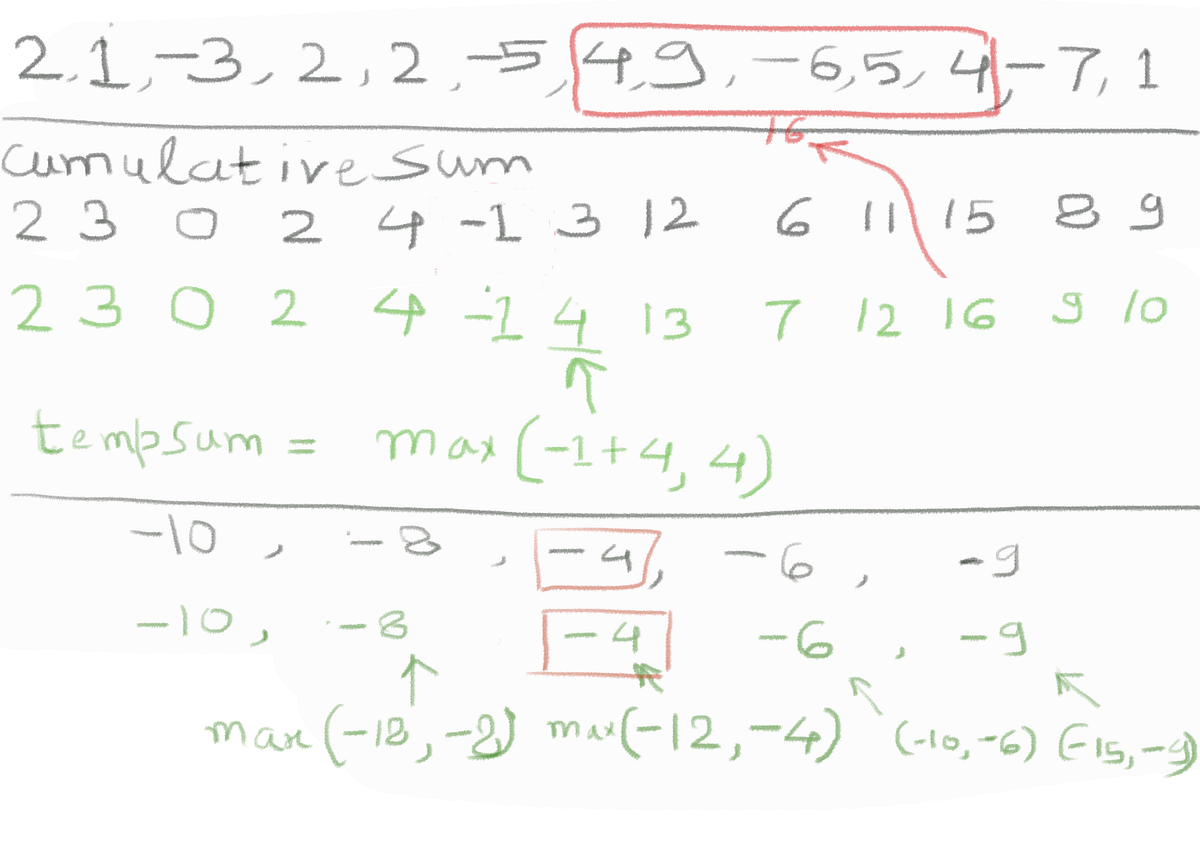 2, 1, -3, 2, 2, -5, 4, 9, -6, 5, 4, -7, 1
16
cumulative sum
2 3 0 2 4 -1 3 12 6 11 15 8 9
2 3 0 2 4 -1 4 13 7 12 16 9 10
tempsum = max(-1+4, 4)
-10, -8, -4, -6, -9
-10, -8 -4 -6, -9
max(-18, -8) max(-12, -4) (-10, -6) (-15, -9)